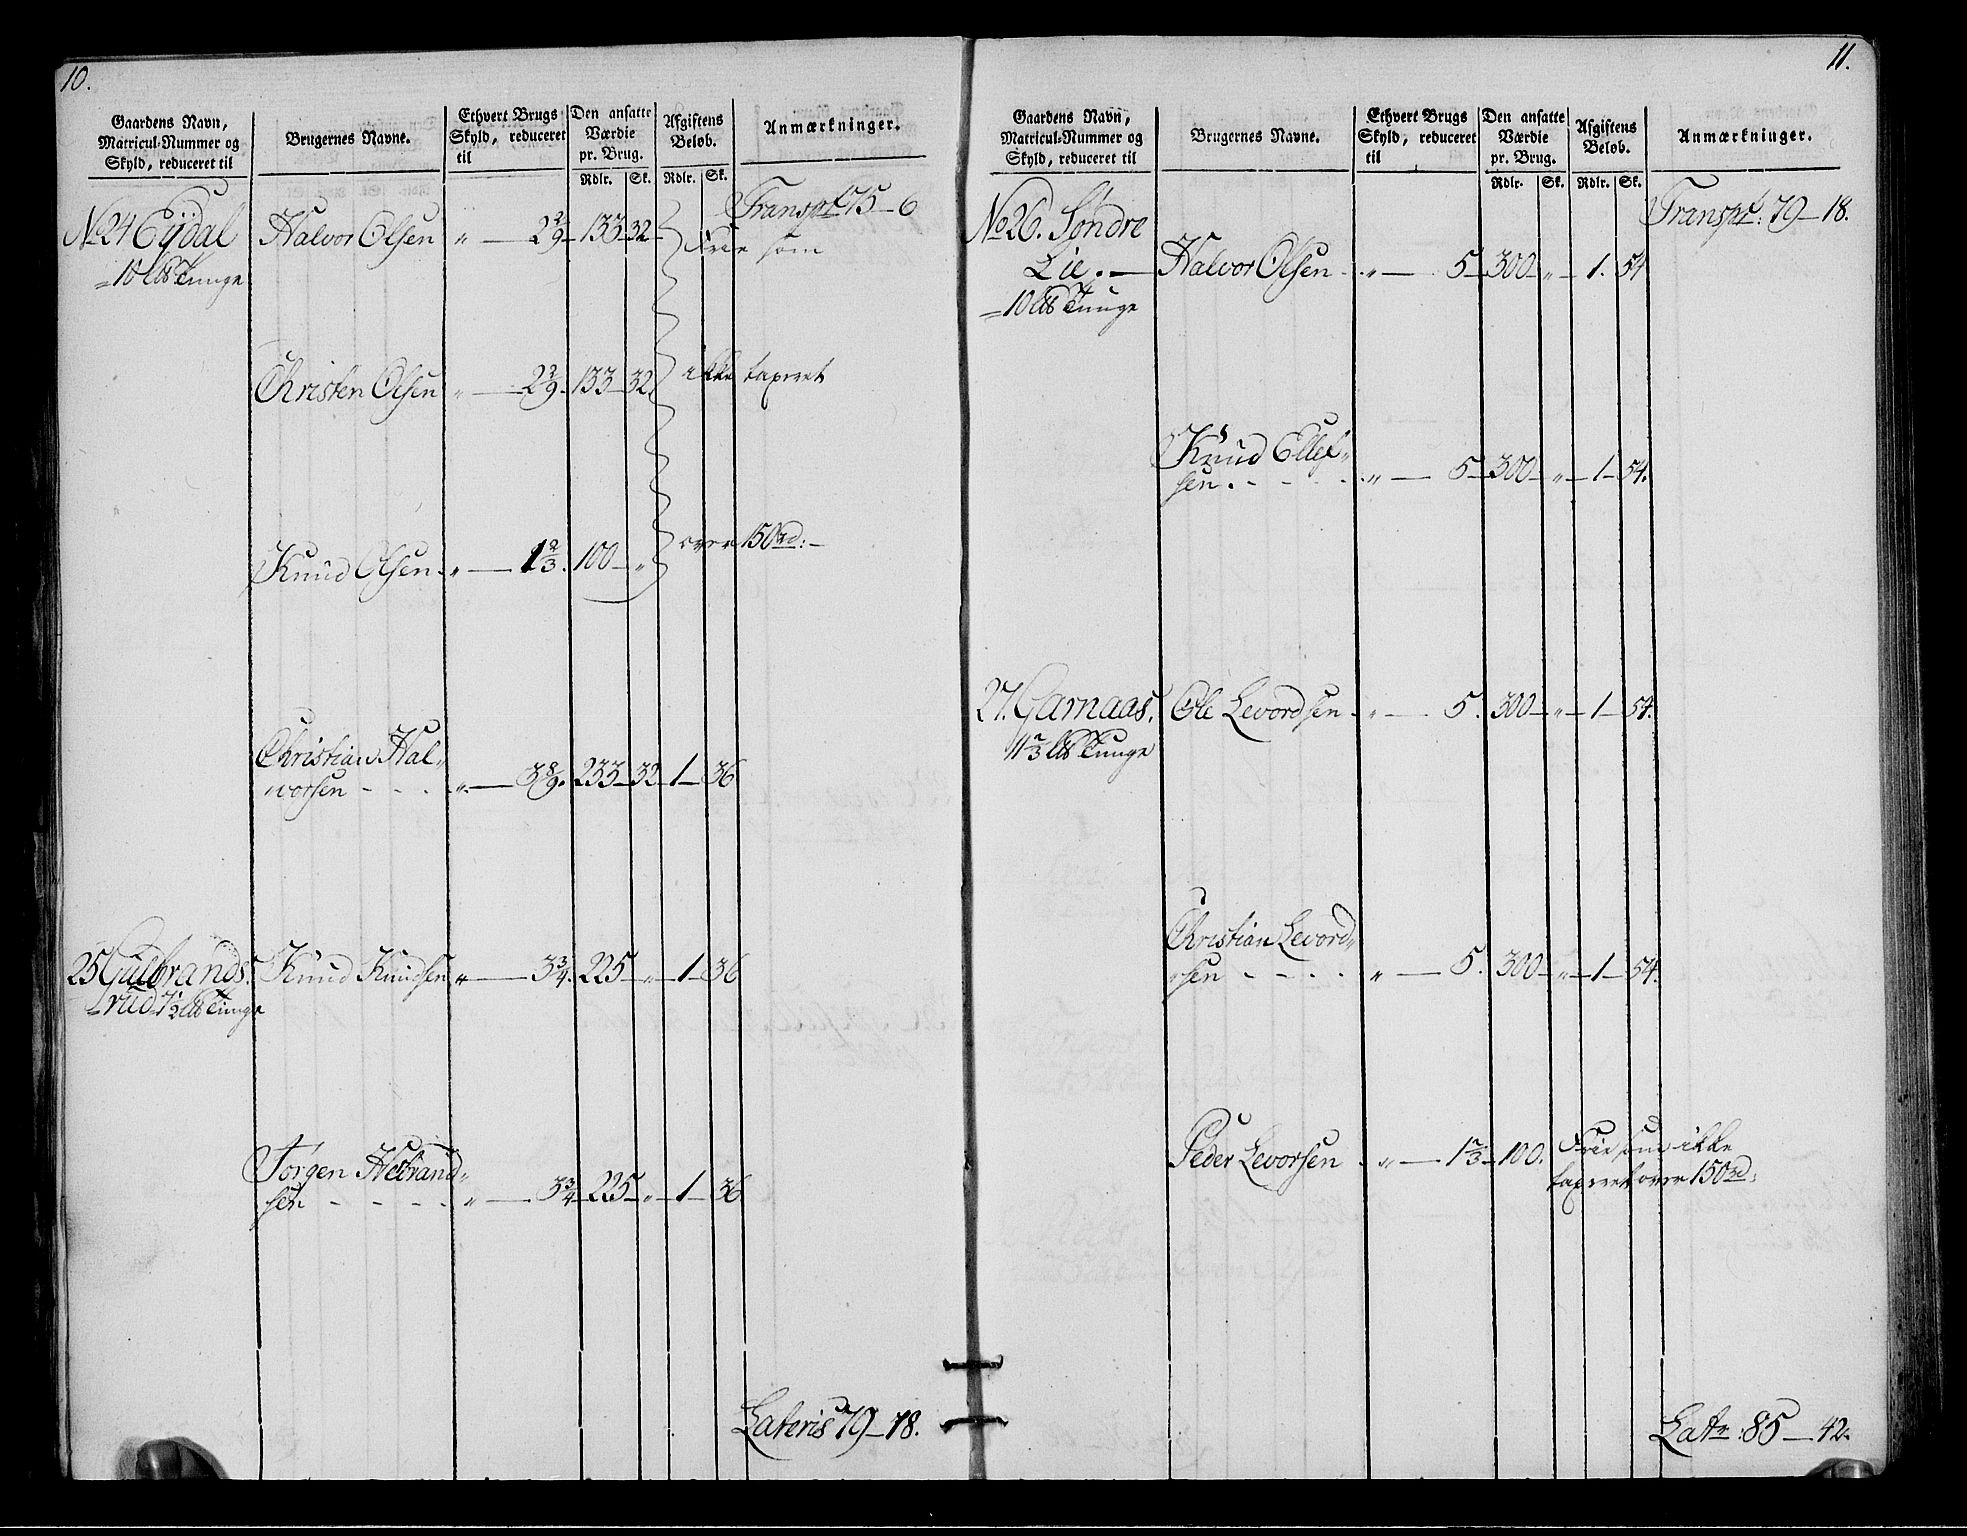 10.
Gaardens Navn, Matricul-Nummer og Skyld, reduceret til
Brugernes Navne.
Ethvert Brugs Skyld, reduceret til
Den ansatte Værdie pr. Brug.
Afgiftens Beløb.
Anmærkninger.
Rdlr. Sk. Rdlr. Sk.
Transpt 75 - 6
No 24 Eÿdal Halvor Olsen " — 2 2/9 - 133 - 32 - Frie som
= 10 L℔ Tunge
Christen Olsen " — 2 2/9 - 133 - 32 ikke taxeret
Knud Olsen " — 1 2/3 . 100 - " over 150 rd: -
Christian Hal-
vorsen - - - - " — 3 8/9 . 233 - 32 - 1 - 36
25 Gulbrands- Knud Knudsen " — 3 3/4 . 225 - " - 1 - 36
rud 7 1/2 L℔ Tunge
Jørgen Hebrand-
sen - - - - - " — 3 3/4 - 225 - " - 1 - 36
Lateris 79 - 18.
11.
Gaardens Navn, Matricul-Nummer og Skyld, reduceret til
Brugernes Navne.
Ethvert Brugs Skyld, reduceret til
Den ansatte Værdie pr. Brug.
Afgiftens Beløb.
Anmærkninger.
Rdlr. Sk. Rdlr. Sk.
Transpt: 79 - 18.
No 26. Søndre
Lie. — Halvor Olsen - . " — 5 - 300 - " - 1. 54
= 10 L℔ Tunge
Knud Ellef-
sen. - - - - . " — 5 - 300 - " - 1 - 54.
27. Garnaas. Ole Levordsen - . " — 5. 300 - " - 1 - 54.
11 2/3 L℔ Tunge
Christian Levord-
sen - - - - " — 5. 300 - " - 1 - 54.
Peder Levorsen . " — 1 2/3 - 100. Frie som ikke
taxeret over 150 rd:
Latr: 85 - 42.